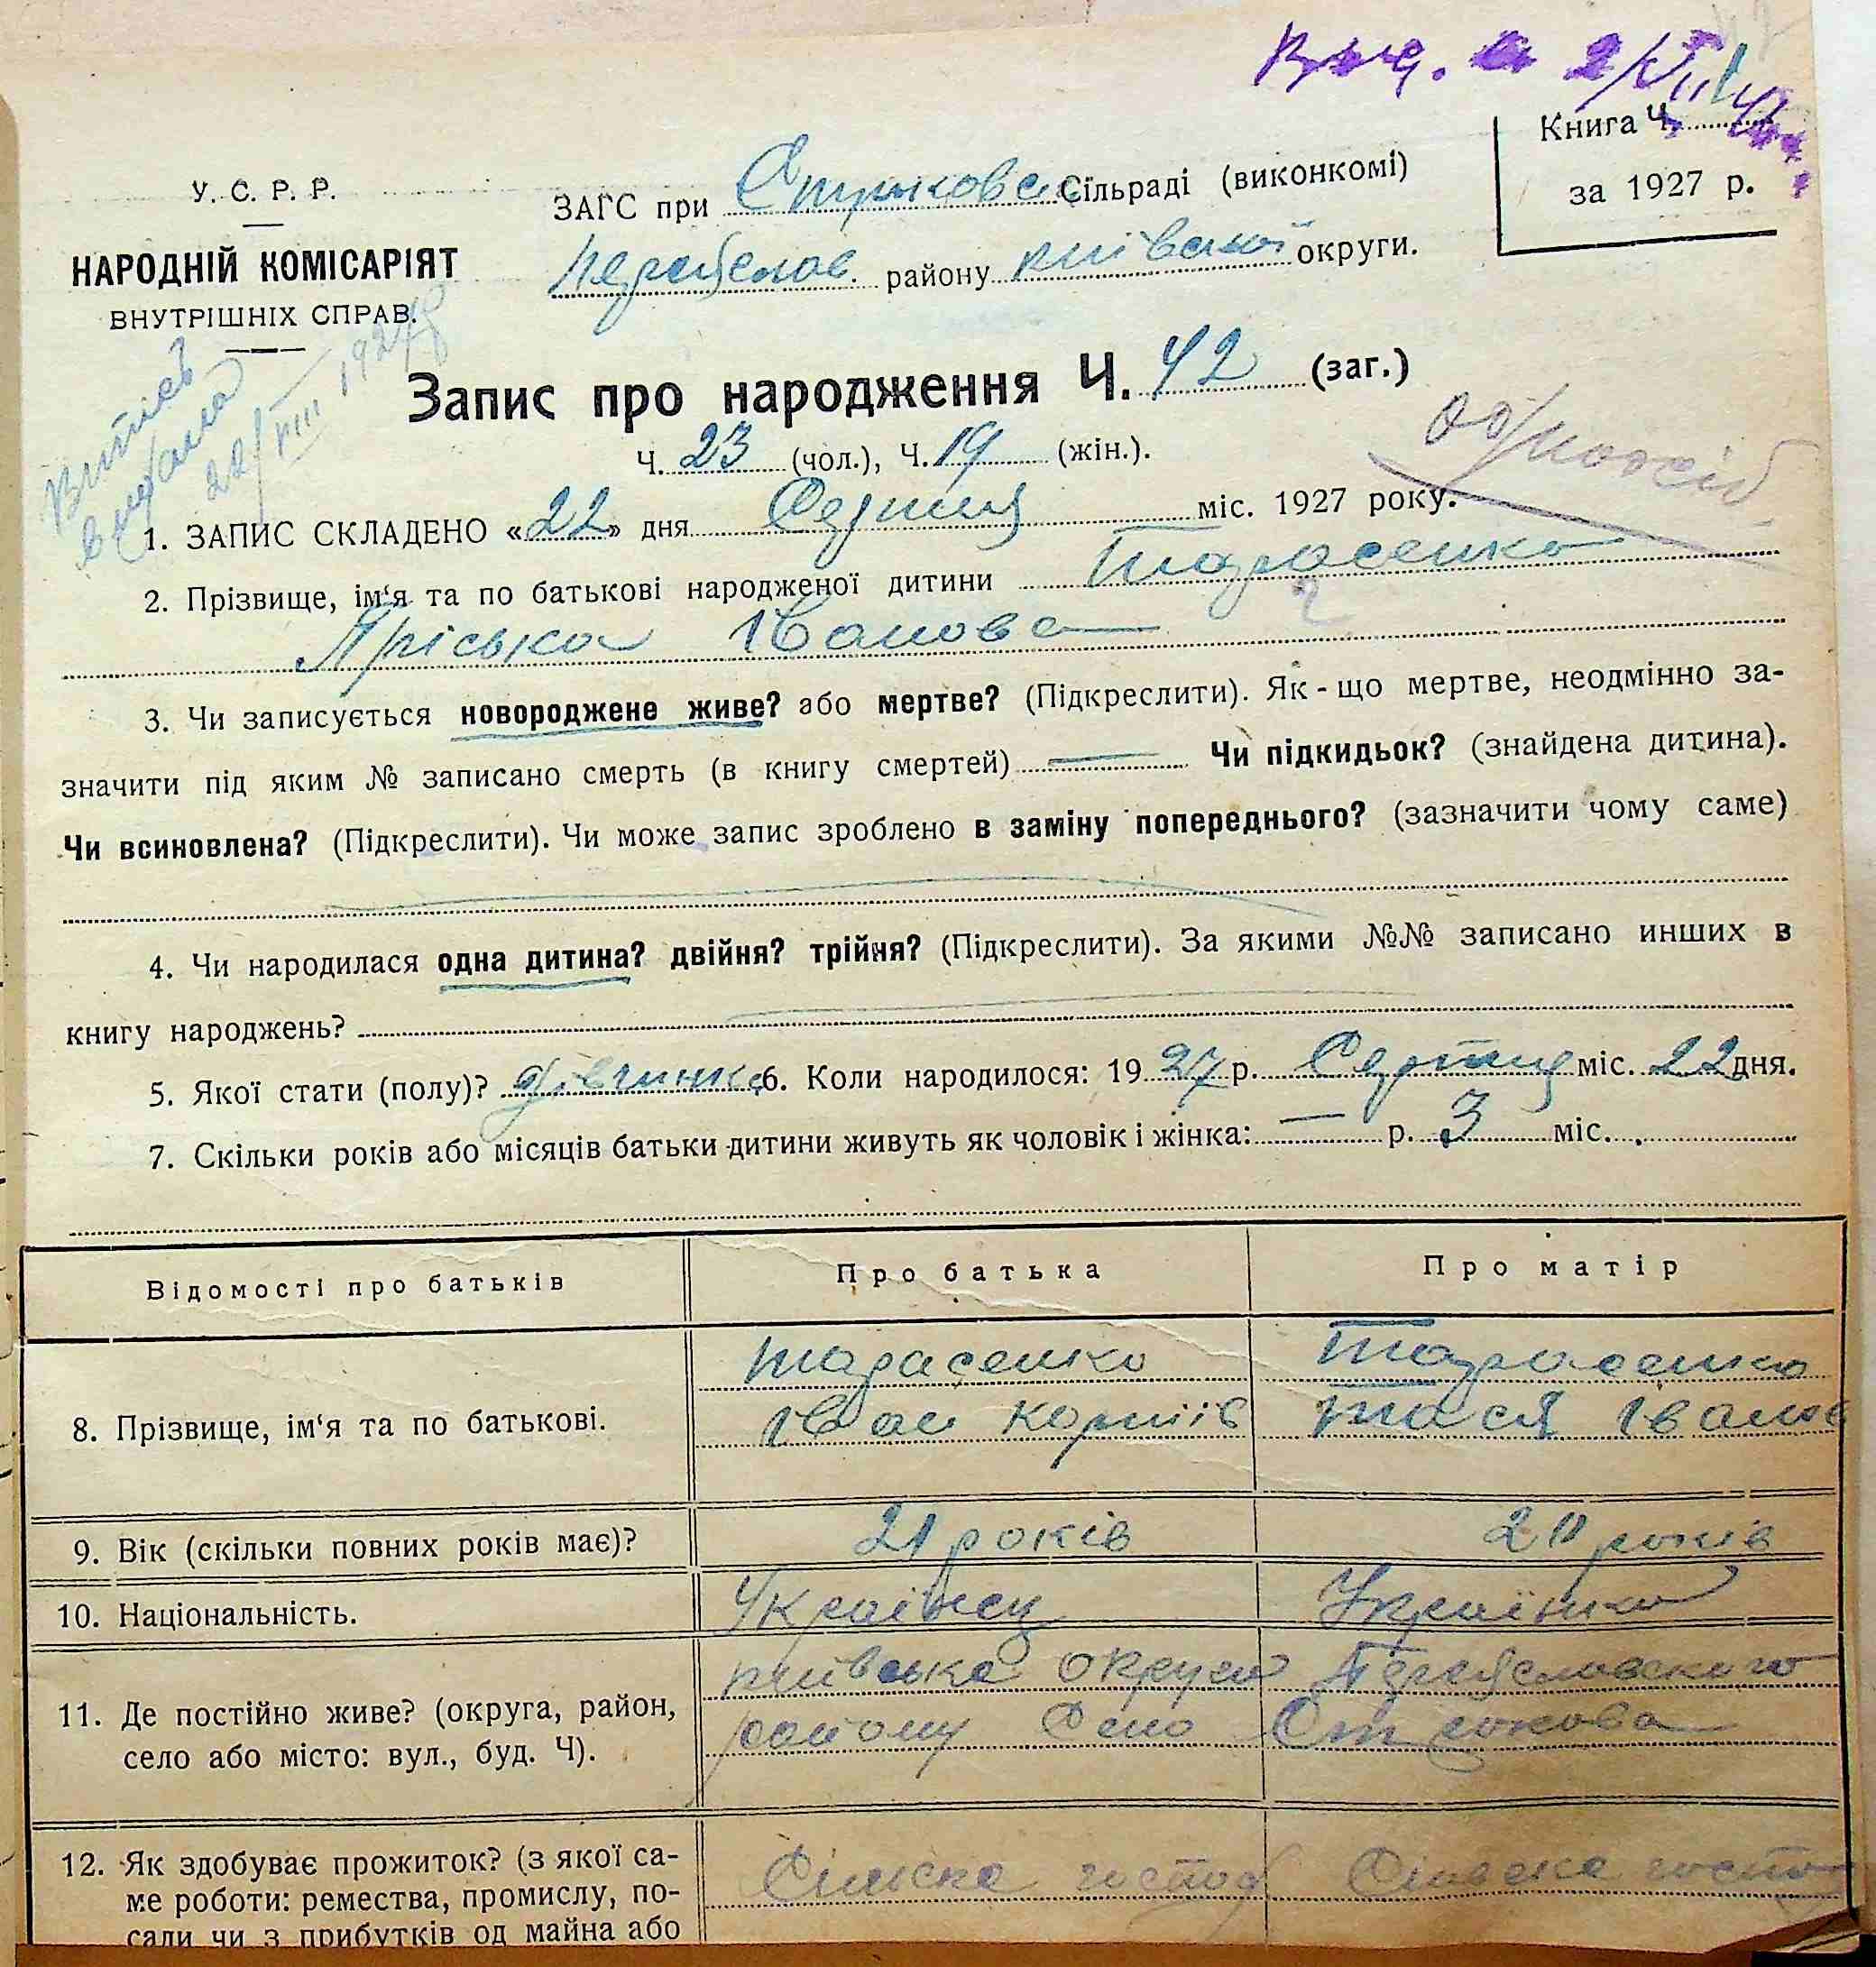 У. С. Р. Р.
НАРОДНІЙ КОМІСАРІЯТ
ВНУТРІШНІХ СПРАВ.
ЗАГС при Стовпяг Сільраді (виконкомі)
Переяслав. району Київської округи.
Книга Ч. 1
за 1927 р.
Витяг
видано
22/VIII 1927 р
Запис про народження Ч. 42 (заг.)
Ч. 23 (чол.), Ч. 19 (жін.).
1. ЗАПИС СКЛАДЕНО «22» дня Серпня міс. 1927 року.
2. Прізвище, ім‘я та по батькові народженої дитини Тарасенко
Пріська Іванова
3. Чи записується новороджене живе? або мертве? (Підкреслити). Як-що мертве, неодмінно за-
значити під яким № записано смерть (в книгу смертей) Чи підкидьок? (знайдена дитина).
Чи всиновлена? (Підкреслити). Чи може запис зроблено в заміну попереднього? (зазначити чому саме)
4. Чи народилася одна дитина? двійня? трійня? (Підкреслити). За якими №№ записано инших в
книгу народжень?
5. Якої стати (полу)? дівчинка 6. Коли народилося: 1927 р. Серпня міс. 22 дня.
7. Скільки років або місяців батьки дитини живуть як чоловік і жінка: — р. 3 міс.
Відомості про батьків Про батька Про матір
8. Прізвище, ім‘я та по батькові. Тарасенко Іван Корніїв Тарасенко Тася Іванов
9. Вік (скільки повних років має)? 21 років 20 років
10. Національність. Українец Українка
11. Де постійно живе? (округа, район,
село або місто: вул., буд. Ч).
Київська округа Переяславского
району Село
12. Як здобуває прожиток? (з якої са-
ме роботи: ремества, промислу, по-
сади чи з прибутків од майна або
Сільске господ Сільске госпо